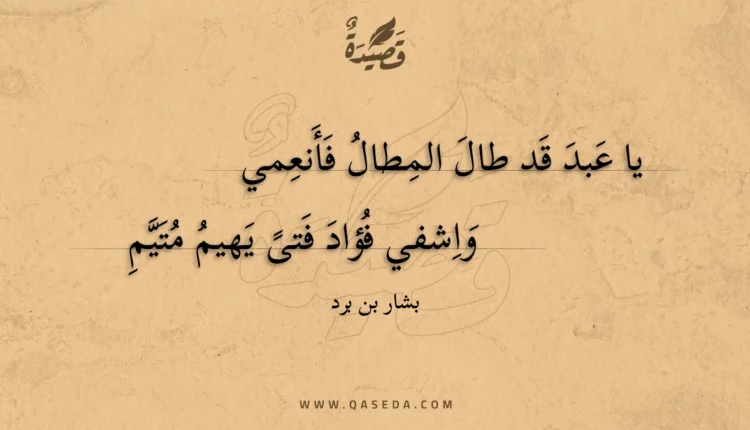 قَصِيْدَةٌ
يا عَبدَ قَد طالَ المِطالُ فَأَنعِمي
وَاِشفي فُؤادَ فَتىً يَهيمُ مُتَيَّمِ
بشار بن برد
WWW.QASEDA.COM